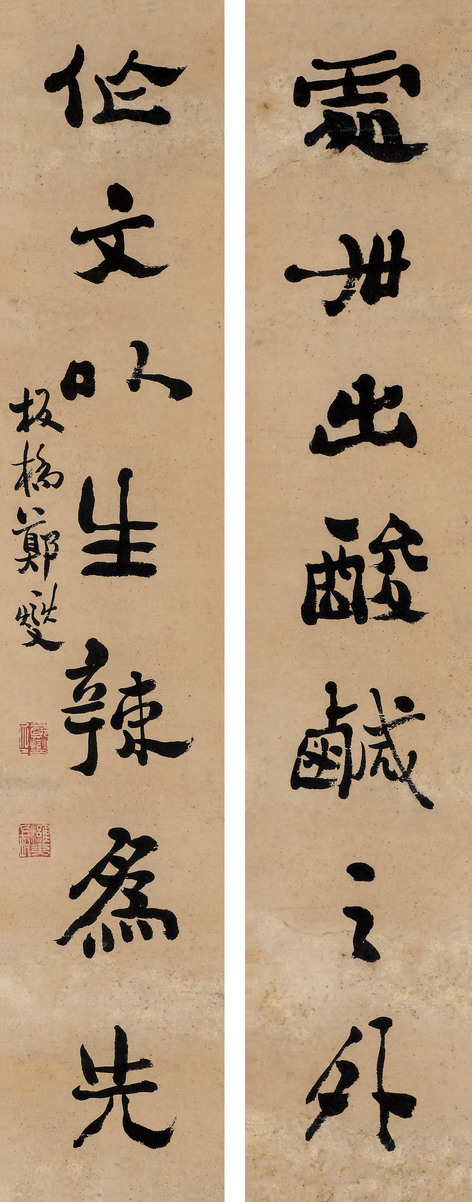 處世出酸鹹之外
作文以生辣為先
板橋鄭燮